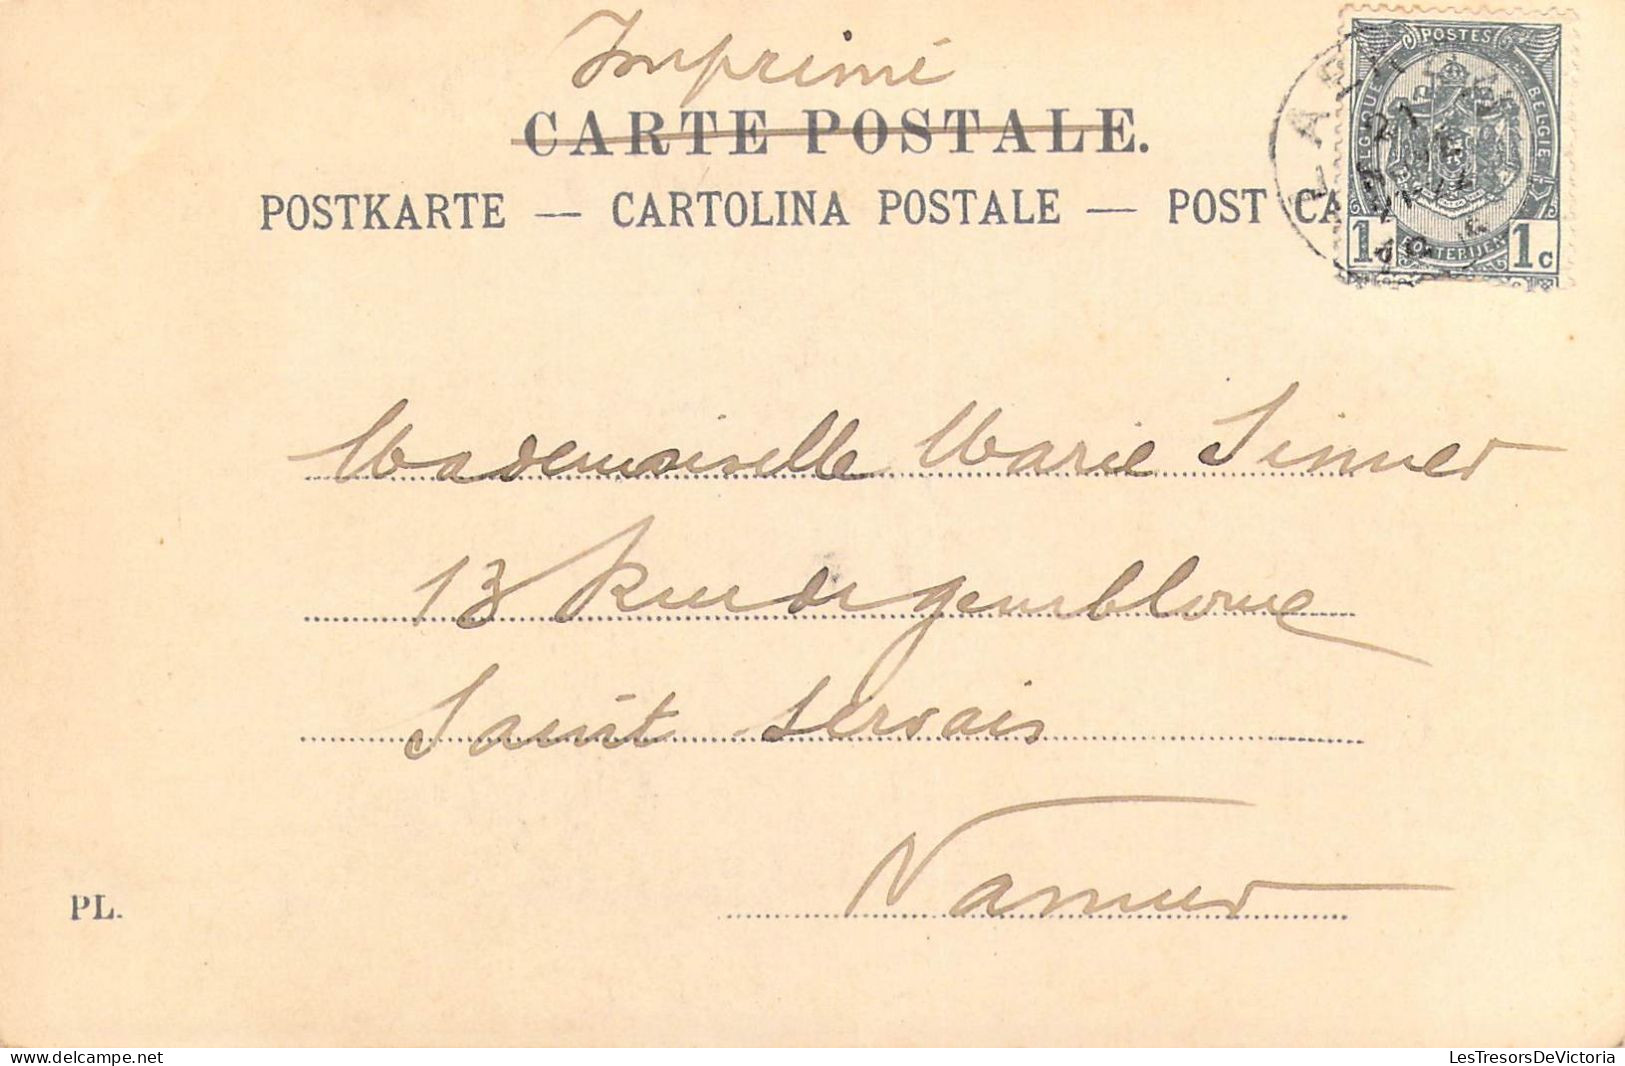 Imprimé
CARTE POSTALE.
POSTKARTE — CARTOLINA POSTALE — POST CA
POSTES
BELGIQUE BELGIE
POSTERIJEN
1 1c
21
Mademoiselle Marie Simmer
13 Rue de Gembloue
Saint Servais
Namur
PL.
LesTresorsDeVictoria